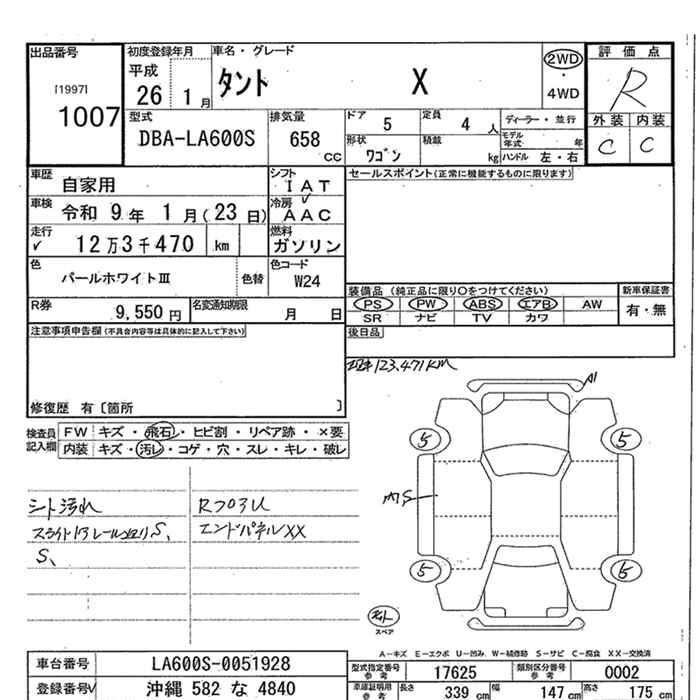 出品番号
[1997]
1007
初度登録年月
平成
26 1月
車名・グレード
タント X
2WD
・
4WD
評価点
R
外装 内装
C C
型式
DBA-LA600S
排気量
658
CC
ドア
5
定員
4 人
ディーラー・並行
形状
ワゴン
積載
kg
モデル年式 年
ハンドル 左・右
車歴
自家用
シフト
I A T
車検
令和 9年 1月(23日)
冷房
A A C
走行
12万3千470 km
燃料
ガソリン
色
パールホワイトⅢ
色替
色コード
W24
R券
9,550 円
名変通知期限
月 日
セールスポイント(正常に機能するものに限ります)
装備品 (純正品に限り○をつけてください)
PS PW ABS エアB AW
SR ナビ TV カワ
新車保証書
有・無
後日品
注意事項申告欄(不具合内容等は具体的に記入して下さい)
修復歴 有〔箇所 〕
123,471KM
検査員
記入欄
FW キズ・飛石・ヒビ割・リペア跡・×要
内装 キズ・汚レ・コゲ・穴・スレ・キレ・破レ
シート汚れ
S、
S、
エンドパネルXX
A1
5 5
5 5
スペア
A-キズ E-エクボ U-凹み W-補修跡 S-サビ C-腐食 XX-交換済
車台番号
LA600S-0051928
登録番号
沖縄 582 な 4840
型式指定番号
参考
17625
類別区分番号
参考
0002
車庫証明用
参考
長さ
339 cm
幅
147 cm
高さ
175 cm